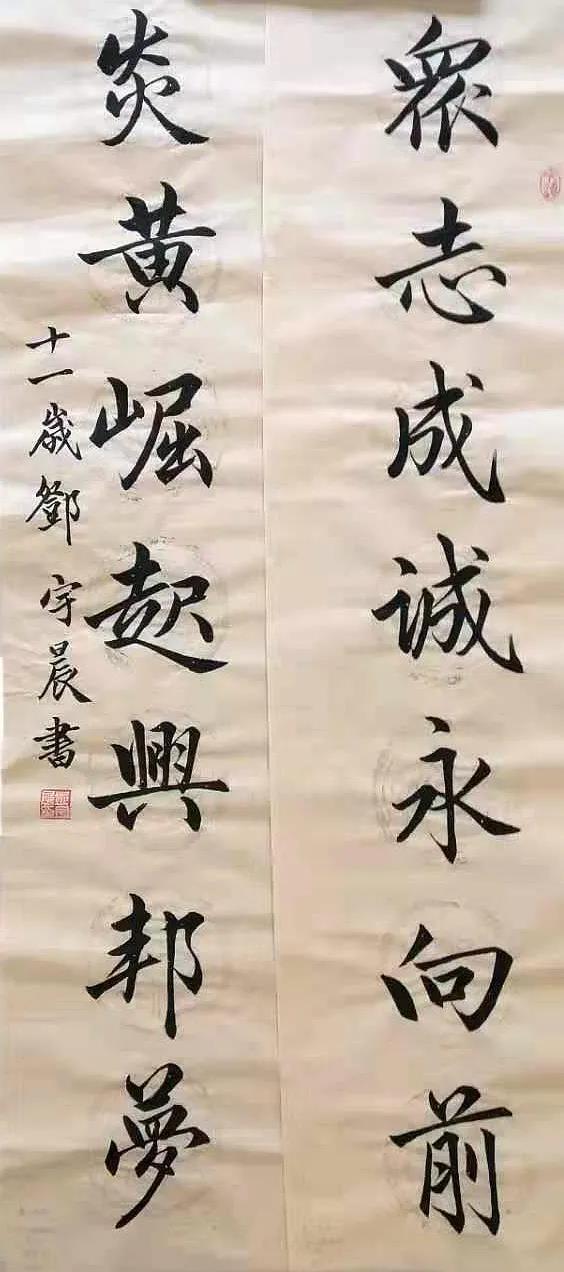 眾志成诚永向前
炎黄崛起興邦夢
十一歲鄧宇晨書